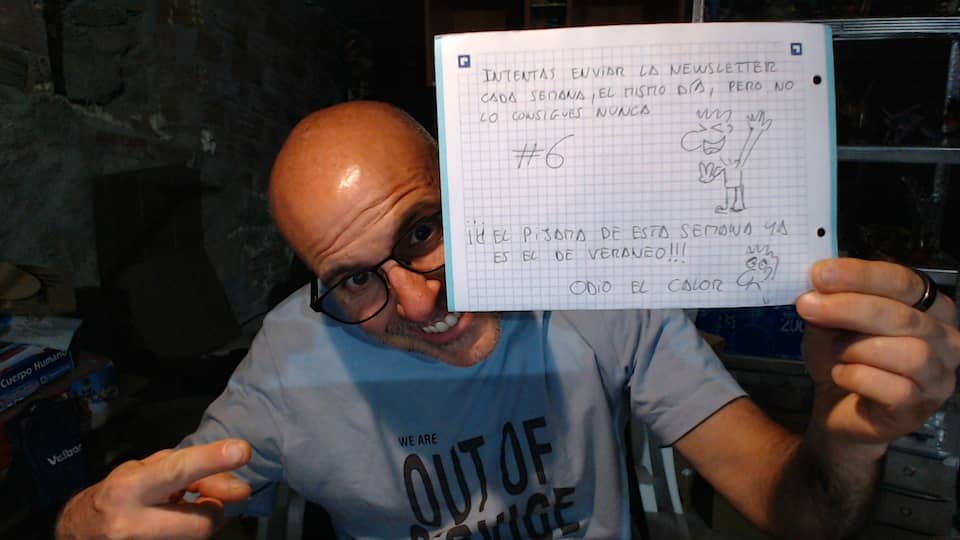 INTENTAS ENVIAR LA NEWSLETTER
CADA SEMANA, EL MISMO DÍA, PERO NO
LO CONSIGUES NUNCA
#6
EL PIJAMA DE ESTA SEMANA YA
ES EL DE VERANEO!!!
ODIO EL CALOR
WE ARE
OUT OF
SERVICE
Cuerpo Humano
Velbon